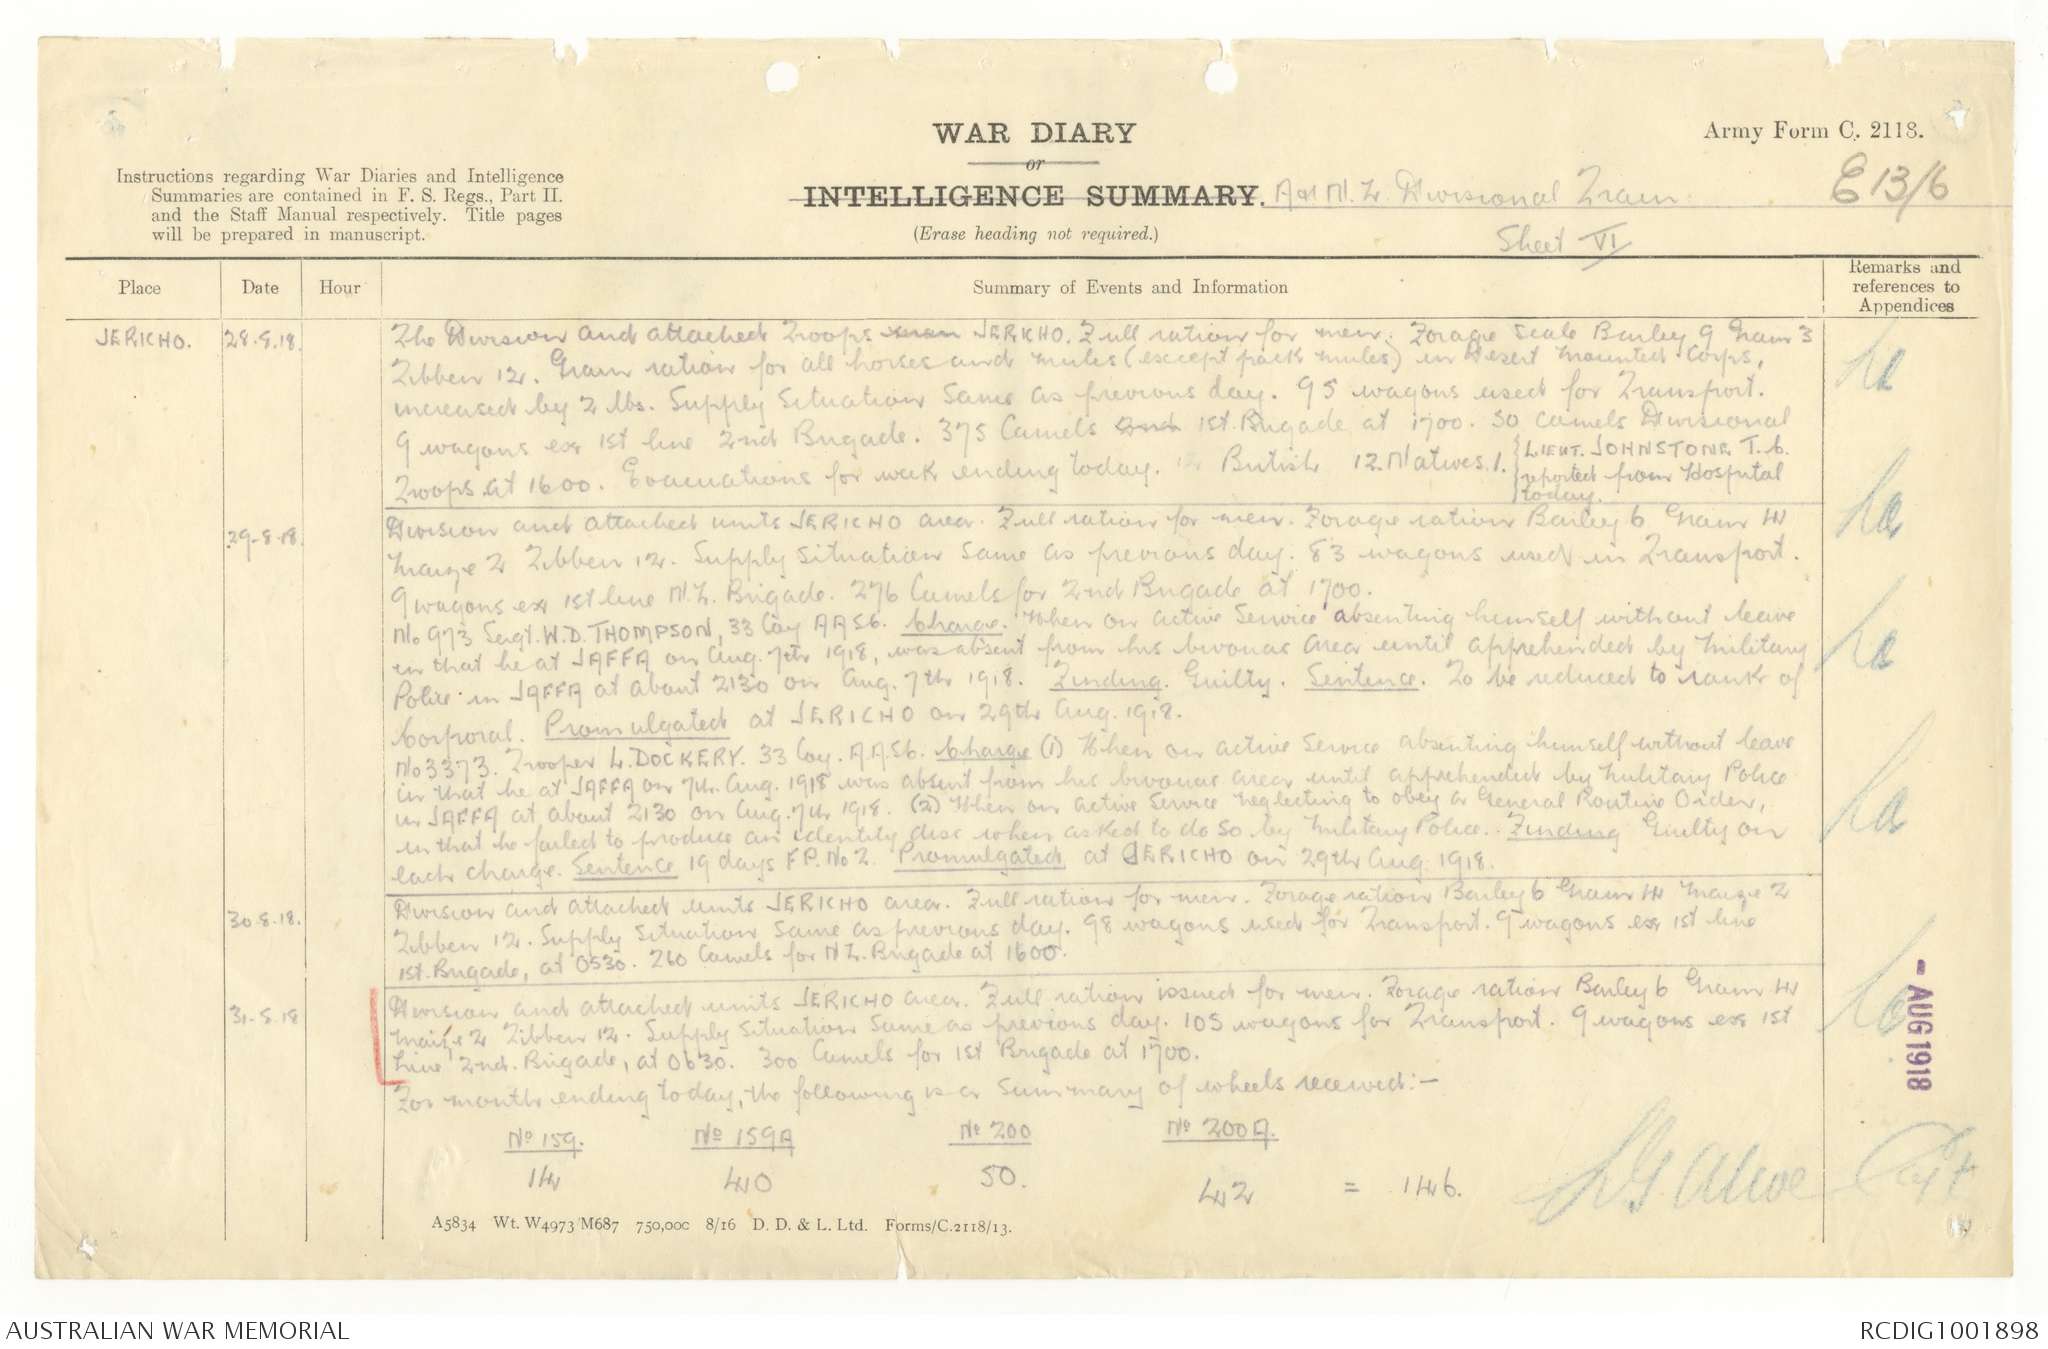 WAR DIARY
or
INTELLIGENCE SUMMARY.
(Erase heading not required.)
Army Form C. 2118.
Instructions regarding War Diaries and Intelligence
Summaries are contained in F. S. Regs., Part II.
and the Staff Manual respectively. Title pages
will be prepared in manuscript.
A & N. Z. Divisional Train
E 13/6
Sheet VI
Place
Date
Hour
Summary of Events and Information
Remarks and
references to
Appendices
JERICHO. 28.8.18. The Division and attached Troops JERICHO. Full ration for men. Forage scale Barley 9 Gram 3
Tibben 12. Gram ration for all horses and mules (except pack mules) in Desert Mounted Corps,
increased by 2 lbs. Supply Situation same as previous day. 95 wagons used for Transport.
9 wagons ex 1st line 2nd Brigade. 375 Camels 1st. Brigade at 1700. 30 camels Divisional
Troops at 1600. Evacuations for week ending today. British 12. Natives 1. LIEUT. JOHNSTONE T.C.
reported from Hospital
today.
29-8-18. Division and attached units JERICHO area. Full ration for men. Forage ration Barley 6 Gram 4
Maize 2 Tibben 12. Supply situation same as previous day. 83 wagons used in Transport.
9 wagons ex 1st line N.Z. Brigade. 276 Camels for 2nd Brigade at 1700.
No 973 Sergt. W.D. THOMPSON, 33 Coy AASC. Charge. When on active Service absenting himself without leave
in that he at JAFFA on Aug. 7th 1918, was absent from his bivouac area until apprehended by Military
Police in JAFFA at about 2130 on Aug. 7th 1918. Finding. Guilty. Sentence. To be reduced to rank of
Corporal. Promulgated at JERICHO on 29th Aug. 1918.
No 3373. Trooper L. DOCKERY. 33 Coy. A.A.S.C. Charge (1) When on active Service absenting himself without leave
in that he at JAFFA on 7th. Aug. 1918 was absent from his bivouac area until apprehended by Military Police
in JAFFA at about 2130 on Aug. 7th 1918. (2) When on active service neglecting to obey a General Routine Order,
in that he failed to produce an identity disc when asked to do so by Military Police. Finding Guilty on
each charge. Sentence 19 days F.P. No 2. Promulgated at JERICHO on 29th Aug 1918.
30-8-18. Division and attached units JERICHO area. Full ration for men. Forage ration Barley 6 Gram 4 Maize 2
Tibben 12. Supply situation same as previous day. 98 wagons used for Transport. 9 wagons ex 1st line
1st. Brigade, at 0530. 260 Camels for NZ. Brigade at 1600.
31-8-18 Division and attached units JERICHO area. Full ration issued for men. Forage ration Barley 6 Gram 4
Maize 2 Tibben 12. Supply situation same as previous day. 105 wagons for Transport. 9 wagons ex 1st
Line 2nd. Brigade, at 0630. 300 Camels for 1st Brigade at 1700.
For month ending today, the following is a summary of wheels received:—
No 159. No 159A No 200 No 200A.
14 40 50. 42 = 146.
- AUG 1918
Capt
A5834 Wt. W4973/M687 750,000 8/16 D. D. & L. Ltd. Forms/C.2118/13.
AUSTRALIAN WAR MEMORIAL
RCDIG1001898